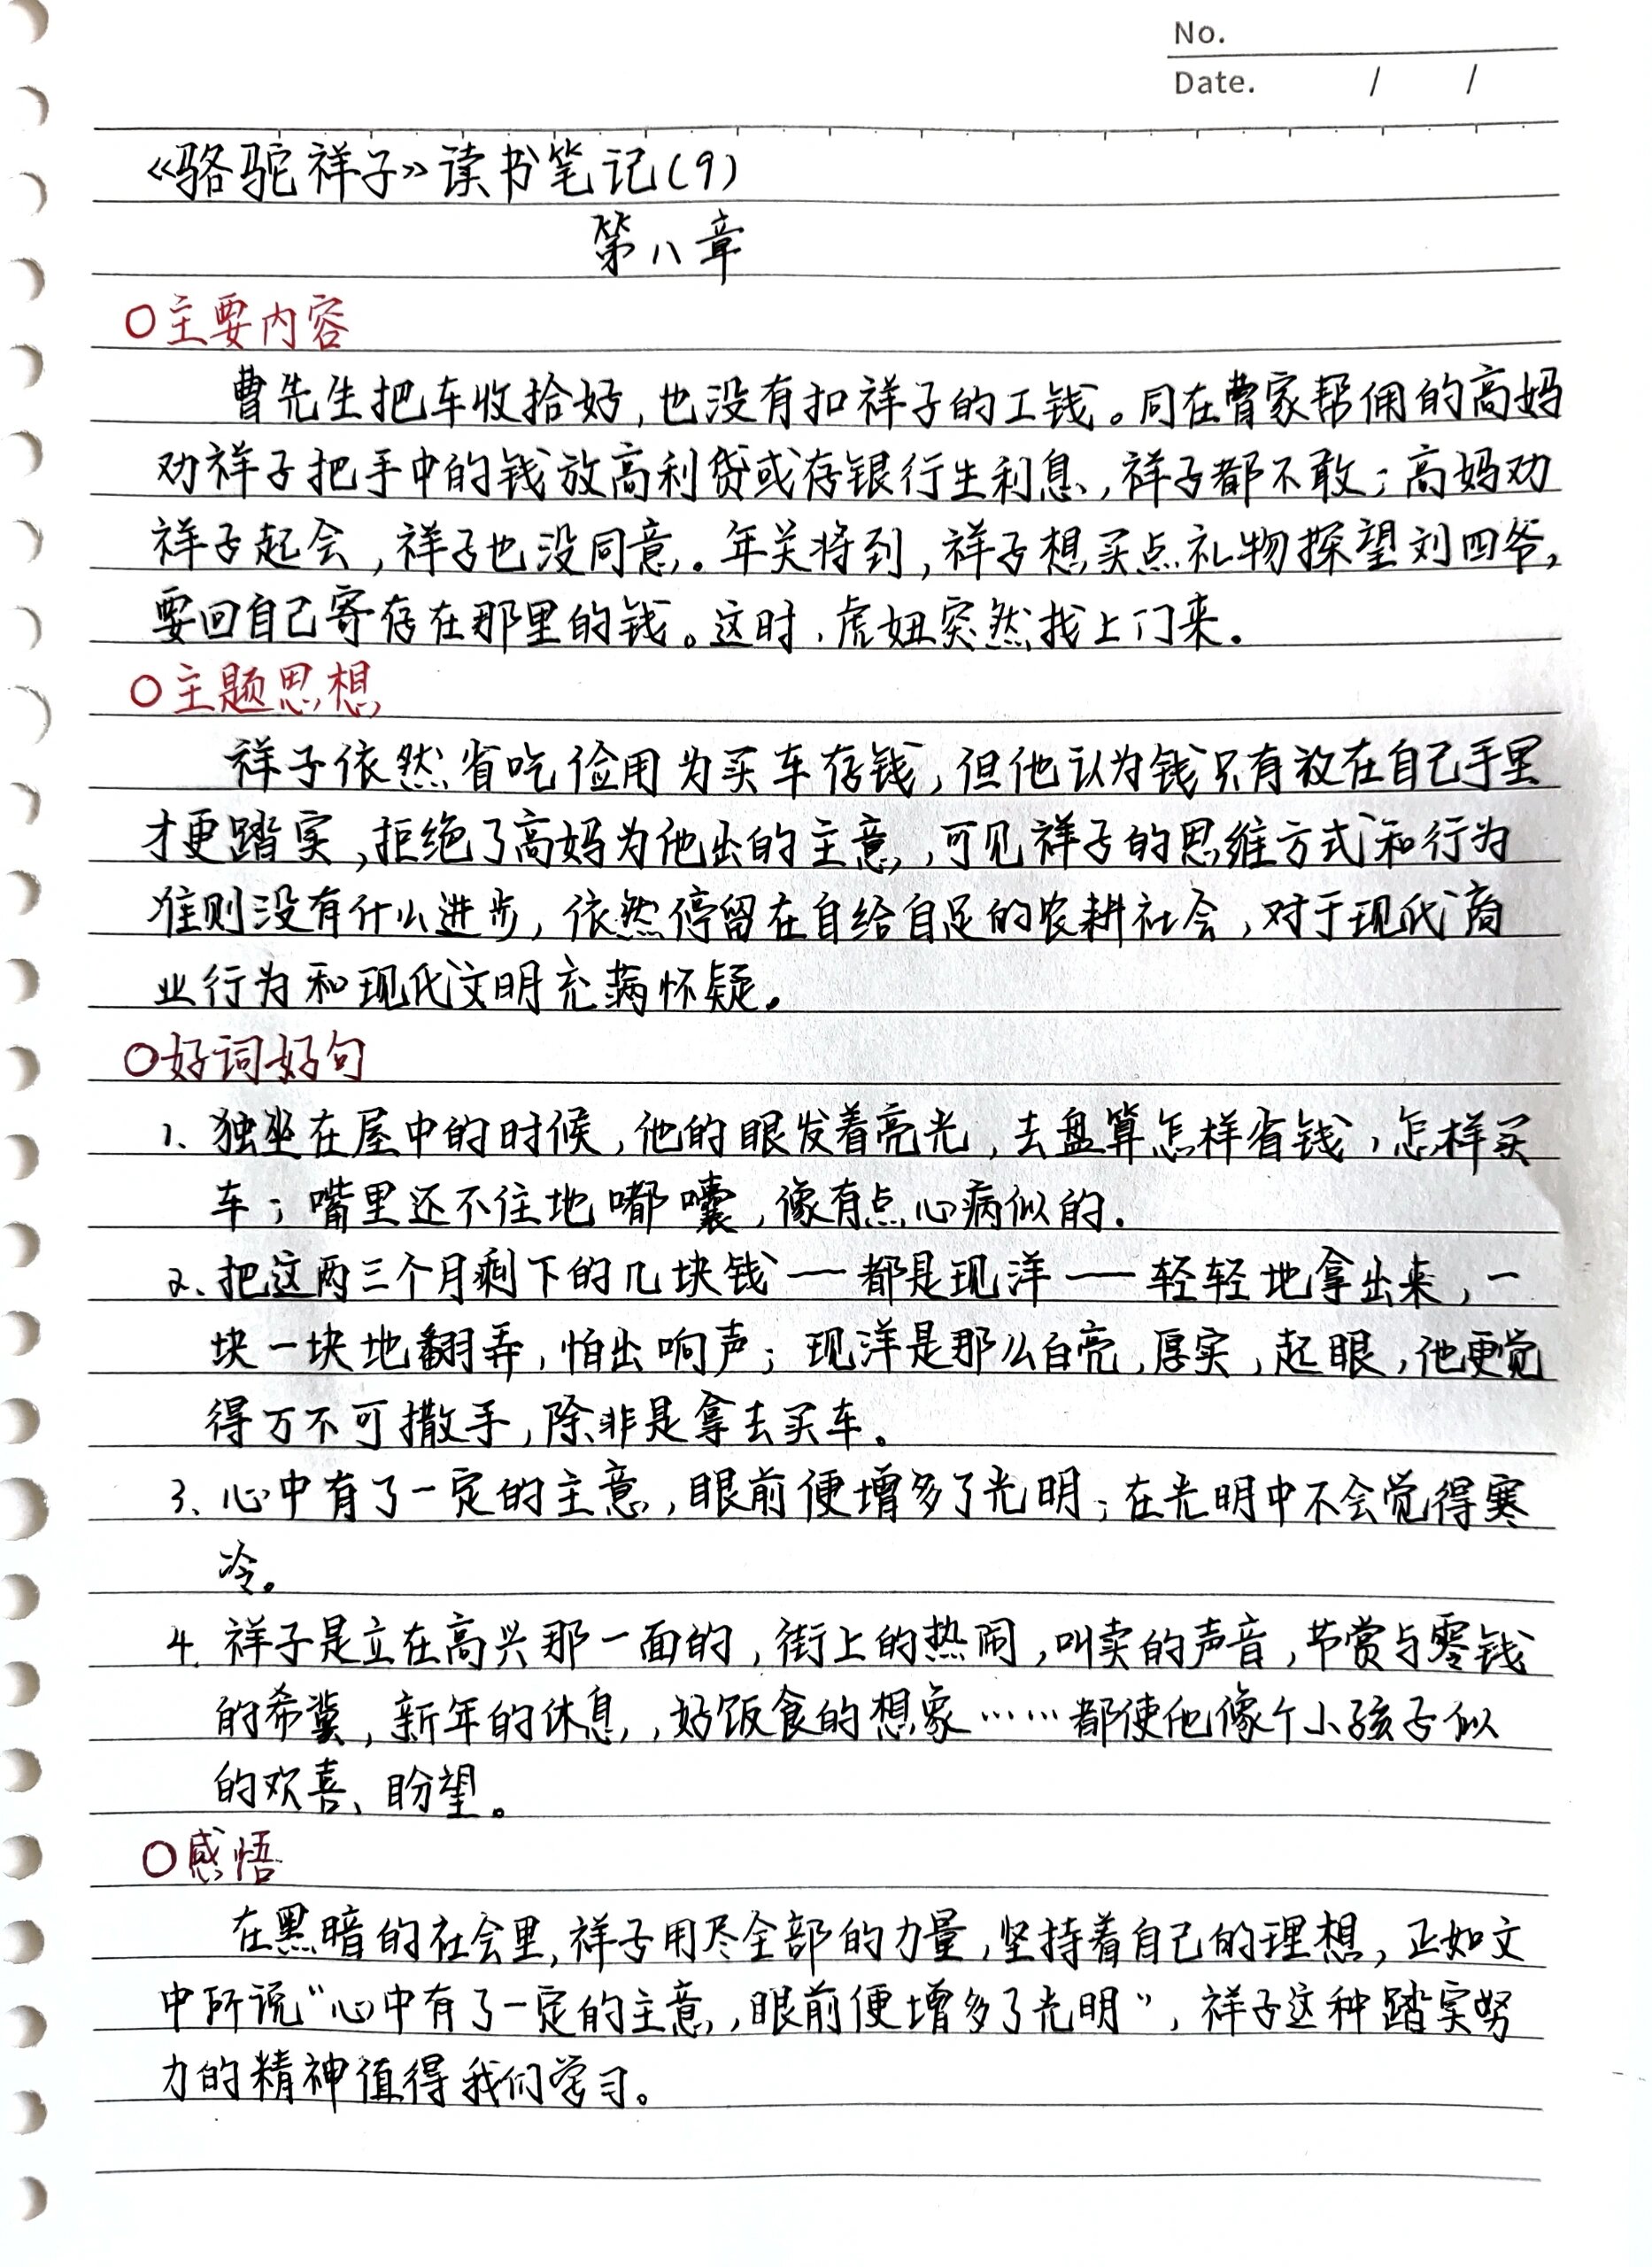 No.
Date. / /
《骆驼祥子》读书笔记(9)
第八章
○主要内容
曹先生把车收拾好,也没有扣祥子的工钱。同在曹家帮佣的高妈
劝祥子把手中的钱放高利贷或存银行生利息,祥子都不敢;高妈劝
祥子起会,祥子也没同意。年关将到,祥子想买点礼物探望刘四爷,
要回自己寄存在那里的钱。这时,虎妞突然找上门来。
○主题思想
祥子依然省吃俭用为买车存钱,但他认为钱只有放在自己手里
才更踏实,拒绝了高妈为他出的主意,可见祥子的思维方式和行为
准则没有什么进步,依然停留在自给自足的农耕社会,对于现代商
业行为和现代文明充满怀疑。
○好词好句
1、独坐在屋中的时候,他的眼发着亮光,去盘算怎样省钱,怎样买
车;嘴里还不住地嘟囔,像有点心病似的.
2、把这两三个月剩下的几块钱——都是现洋——轻轻地拿出来,一
块一块地翻弄,怕出响声;现洋是那么白亮,厚实,起眼,他更觉
得万不可撒手,除非是拿去买车。
3、心中有了一定的主意,眼前便增多了光明;在光明中不会觉得寒
冷。
4.祥子是立在高兴那一面的,街上的热闹,叫卖的声音,节赏与零钱
的希冀,新年的休息,好饭食的想象……都使他像个小孩子似
的欢喜、盼望。
○感悟
在黑暗的社会里,祥子用尽全部的力量,坚持着自己的理想,正如文
中所说“心中有了一定的主意,眼前便增多了光明”,祥子这种踏实努
力的精神值得我们学习。